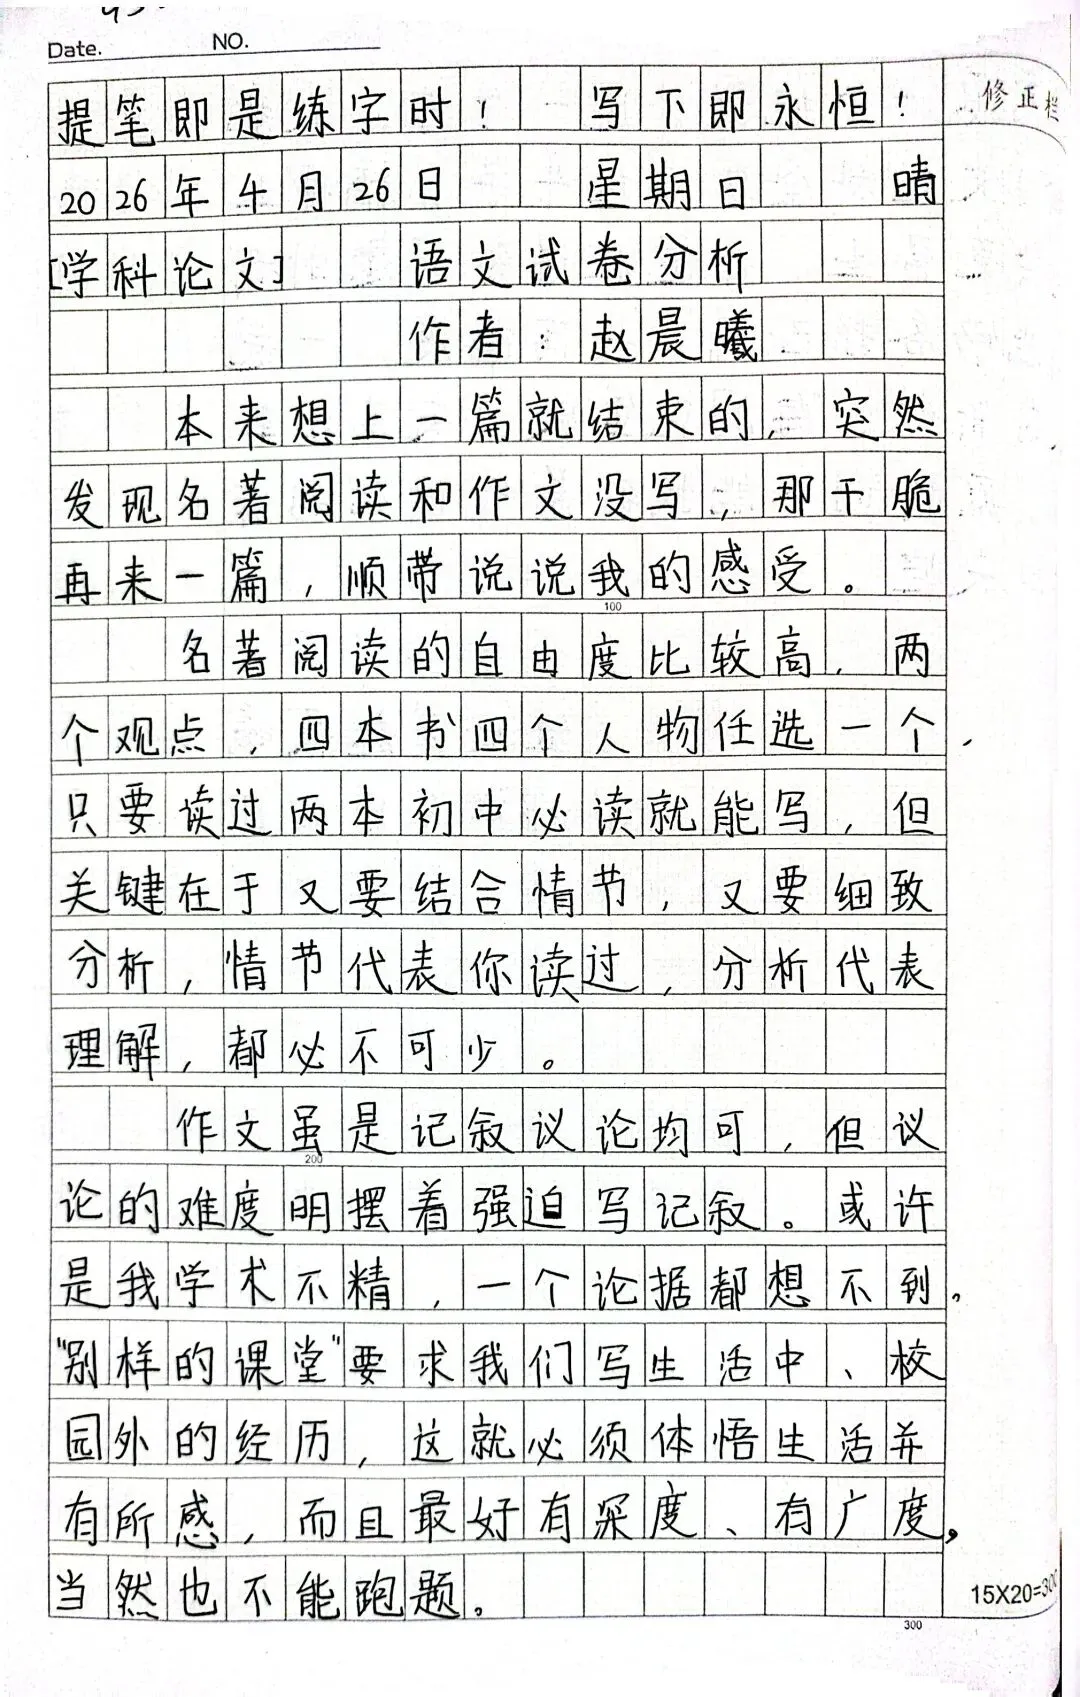 Date. NO.
修正栏
提笔即是练字时! 写下即永恒!
2026年4月26日 星期日 晴
[学科论文] 语文试卷分析
作者:赵晨曦
本来想上一篇就结束的,突然
发现名著阅读和作文没写,那干脆
再来一篇,顺带说说我的感受。
100
名著阅读的自由度比较高,两
个观点,四本书四个人物任选一个
只要读过两本初中必读就能写,但
关键在于又要结合情节,又要细致
分析,情节代表你读过,分析代表
理解,都必不可少。
作文虽是记叙议论均可,但议
200
论的难度明摆着强迫写记叙。或许
是我学术不精,一个论据都想不到。
"别样的课堂"要求我们写生活中、校
园外的经历,这就必须体悟生活并
有所感,而且最好有深度、有广度,
当然也不能跑题。
15X20=300
300